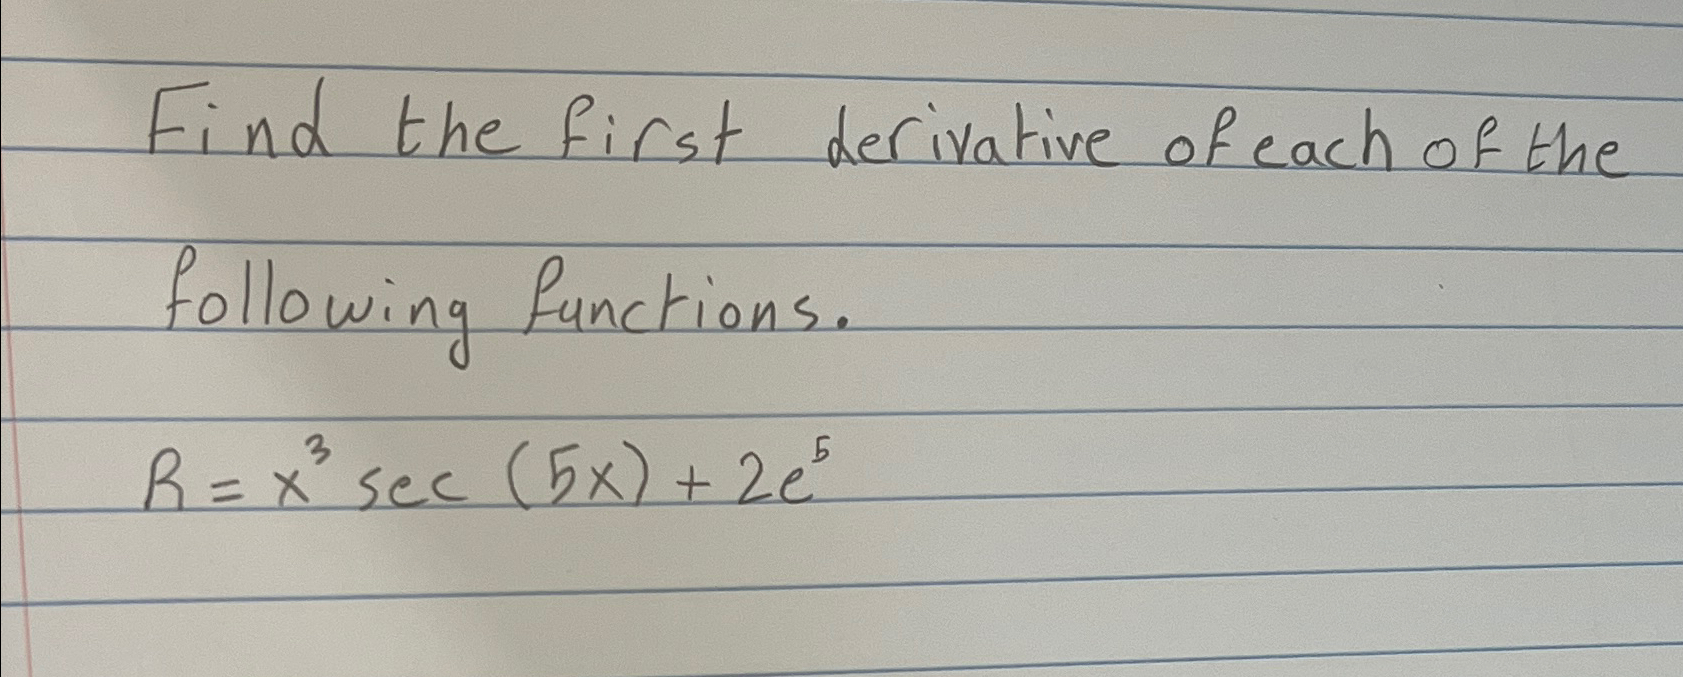 Find the first derivative of each of the
following functions.
R = x³ sec (5x) + 2e⁵